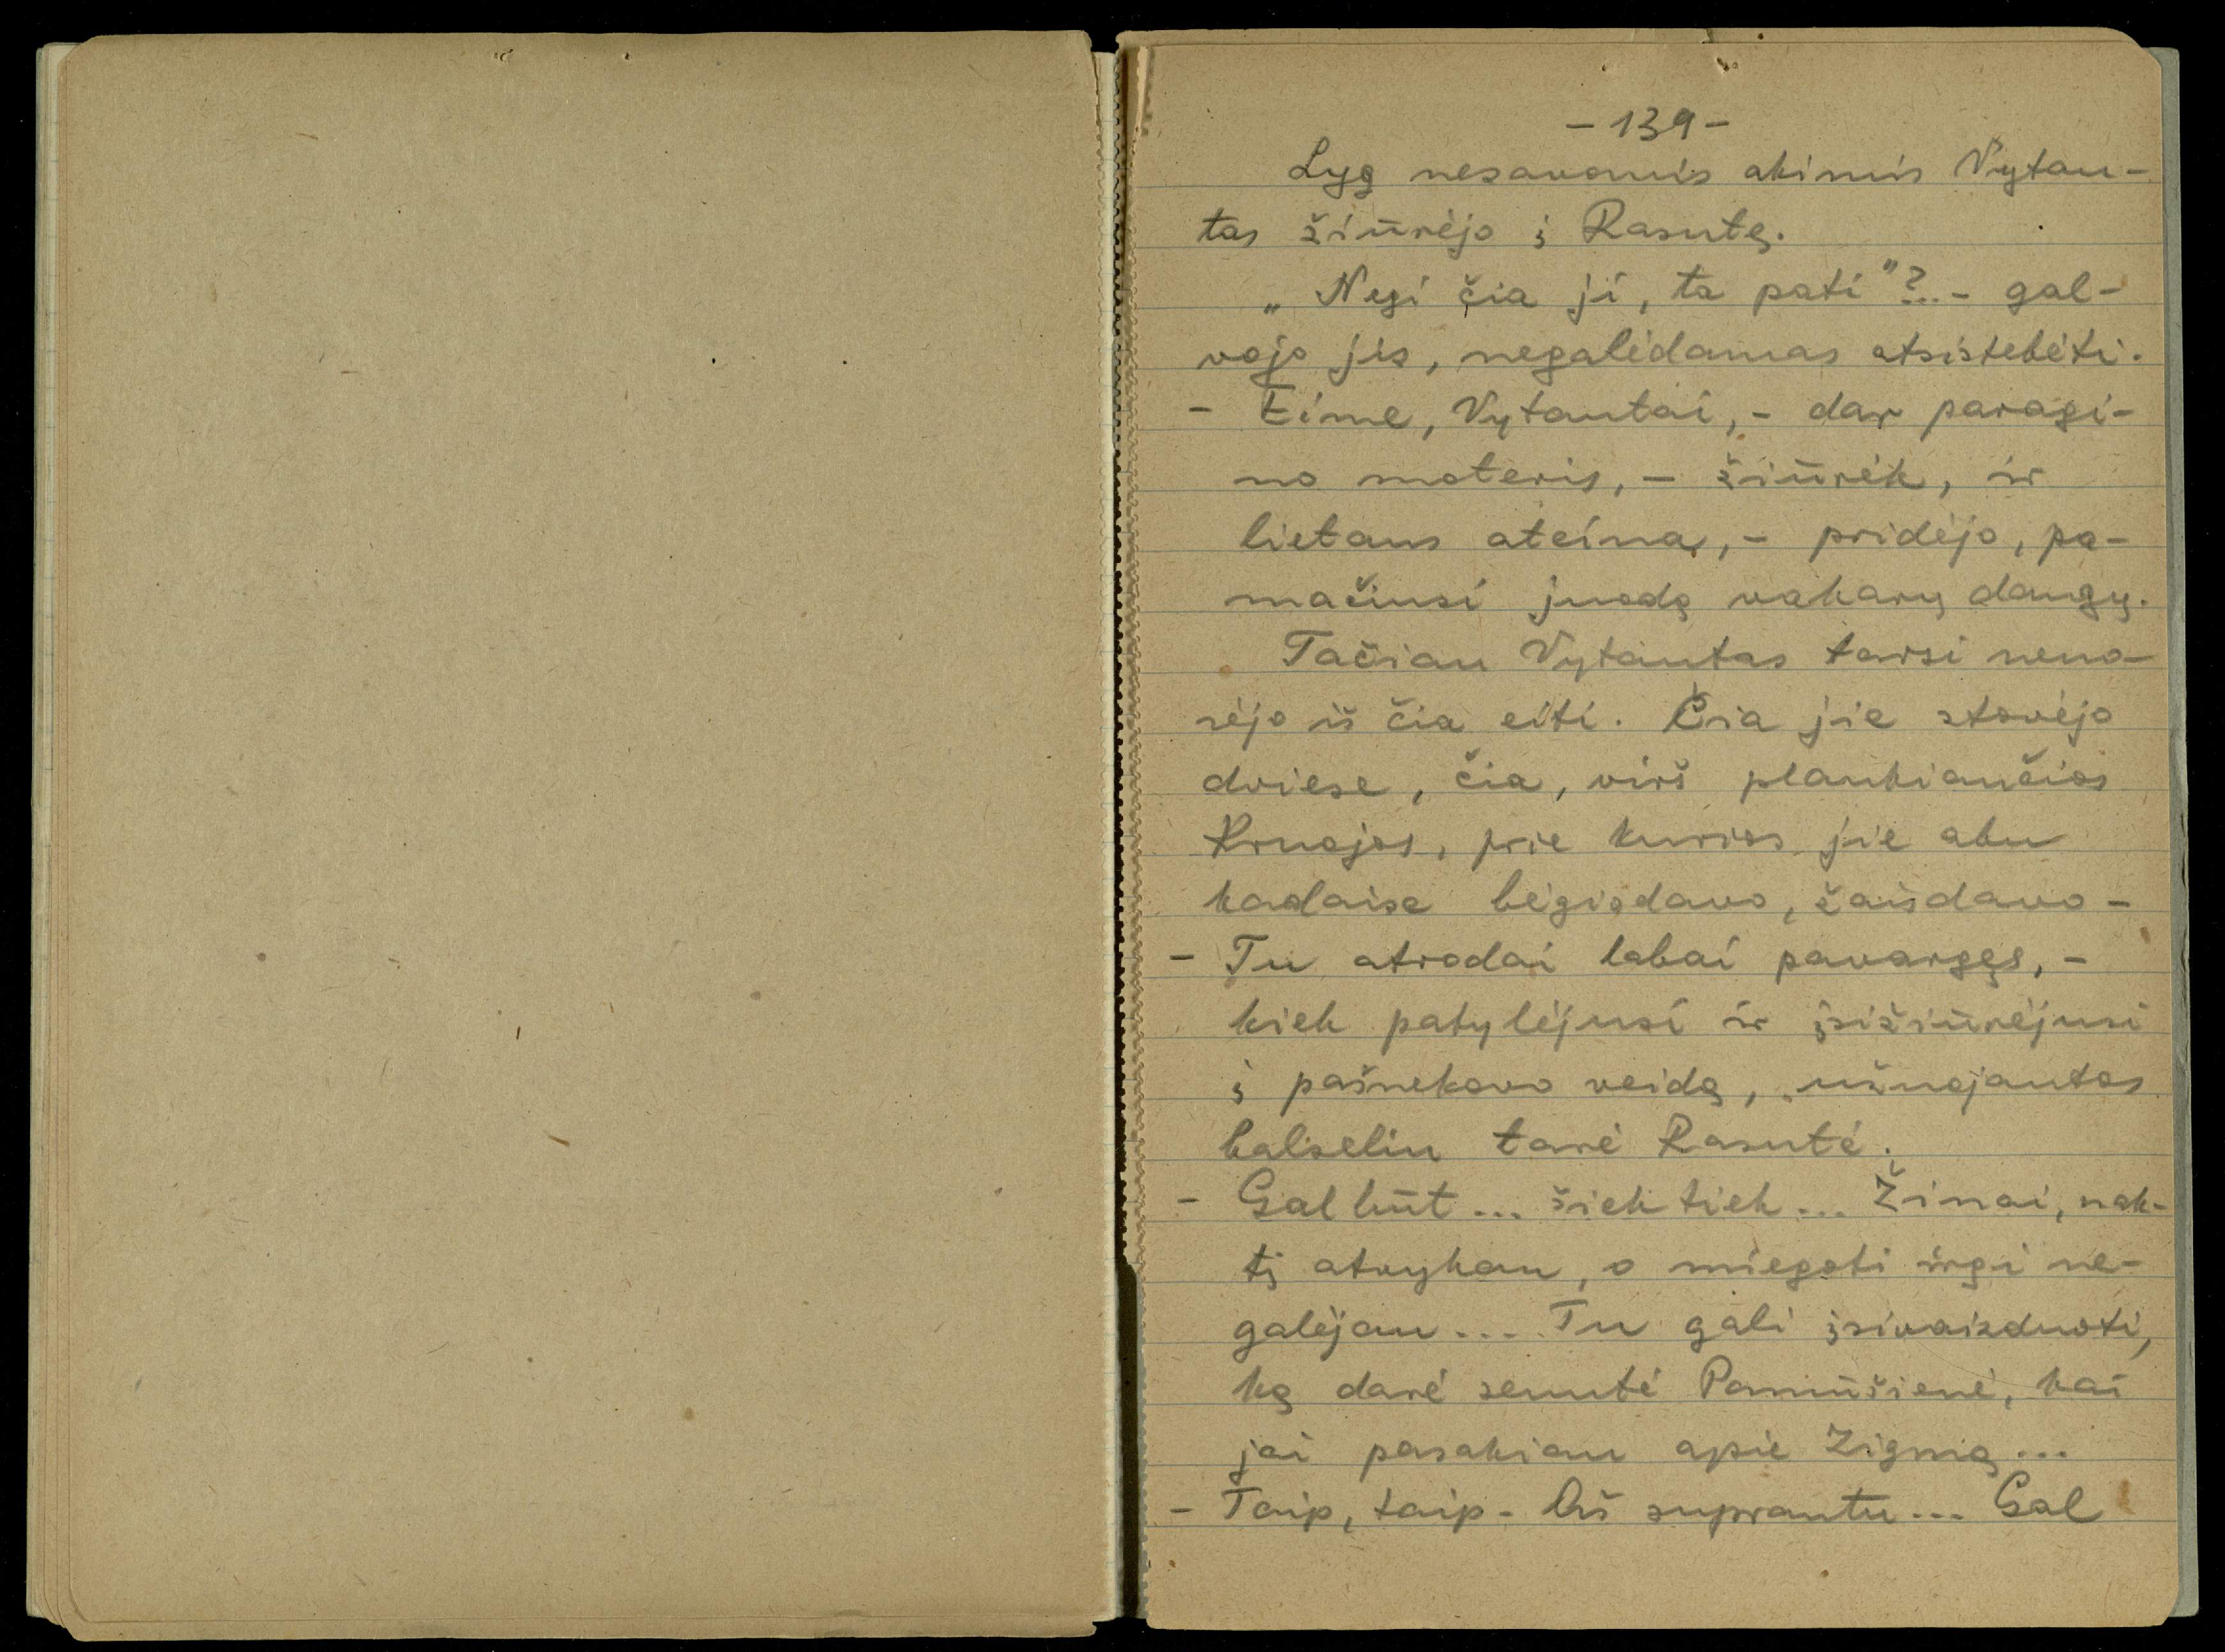 - 139 -
Lyg nesavomis akimis Vytau-
tas žiūrėjo į Rasutę.
„Negi čia ji, ta pati"?.. - gal-
vojo jis, negalėdamas atsistebėti.
- Eime, Vytautai, - dar paragi-
no moteris, - žiūrėk, ir
lietaus ateina, - pridėjo, pa-
mačiusi juodą vakarų dangų.
Tačiau Vytautas tarsi neno-
rėjo iš čia eiti. Čia jie stovėjo
dviese, čia, virš plaukiančios
Kruojos, prie kurios jie abu
kadaise bėgiodavo, žaisdavo -
- Tu atrodai labai pavargęs, -
kiek patylėjusi ir įsižiūrėjusi
į pašnekovo veidą, užuojautos
balseliu tarė Rasutė.
- Gal būt... šiek tiek... Žinai, nak-
tį atvykau, o miegoti irgi ne-
galėjau... Tu gali įsivaizduoti,
ką darė senutė Pamūšienė, kai
jai pasakiau apie Zigmą...
- Taip, taip - Aš suprantu... Gal